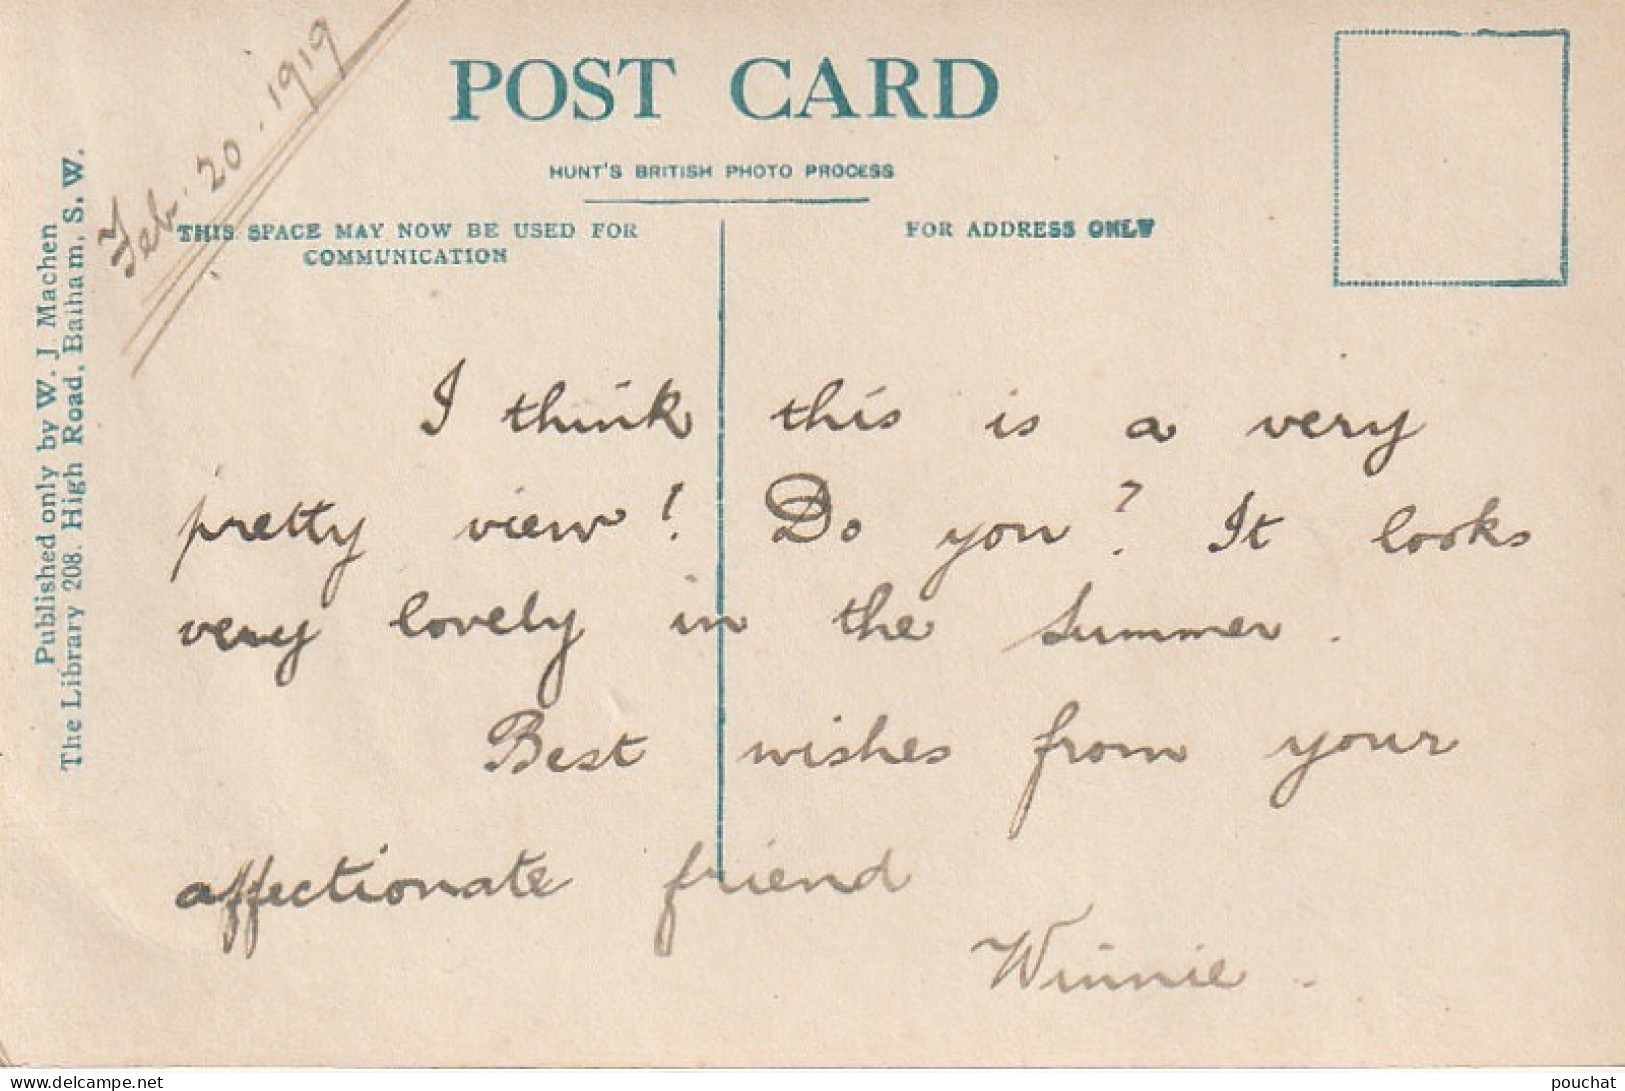 Feb. 20. 1919
POST CARD
HUNT'S BRITISH PHOTO PROCESS
THIS SPACE MAY NOW BE USED FOR
COMMUNICATION
FOR ADDRESS ONLY
Published only by W. J Machen
The Library 208. High Road, Balham, S. W.
I think this is a very
pretty view! Do you? It looks
very lovely in the Summer.
Best wishes from your
affectionate friend
Winnie.
www.delcampe.net
pouchat